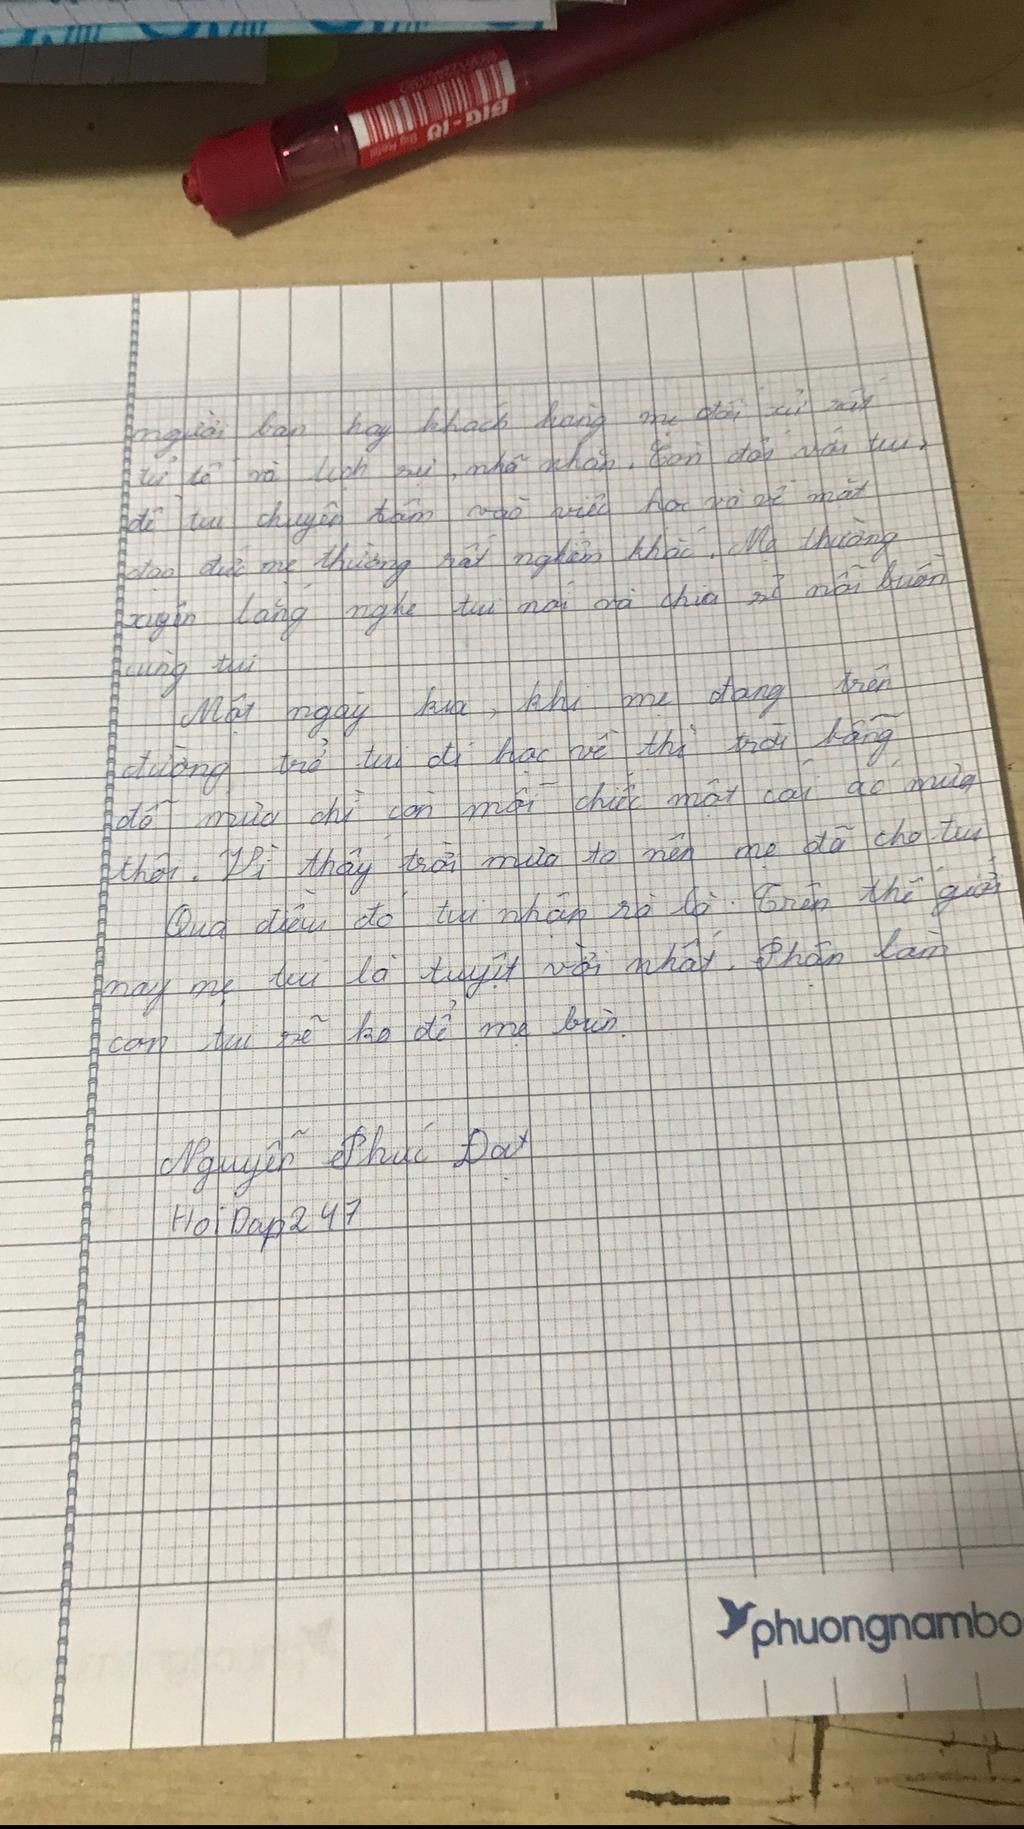 BIG-10
Big Refill
người bạn hay khách hàng mẹ đối xử rất
tử tế và lịch sự, nhã nhặn. Còn đối với tui,
để tui chuyên tâm vào việc học và về mặt
đạo đức mẹ thường rất nghiêm khắc. Mẹ thường
xuyên lắng nghe tui nói và chia sẻ nỗi buồn
cùng tui
Một ngày kia, khi mẹ đang trên
đường trở tui đi học về thì trời bỗng
đổ mưa chỉ còn mỗi chiếc một cái áo mưa
thôi. Vì thấy trời mưa to nên mẹ đã cho tui
Qua điều đó tui nhận rõ là. Trên thế giới
này mẹ tui là tuyệt vời nhất. Phận làm
con tui sẽ ko để mẹ bùn.
Nguyễn Phúc Đạt
HoiDap247
phuongnambo